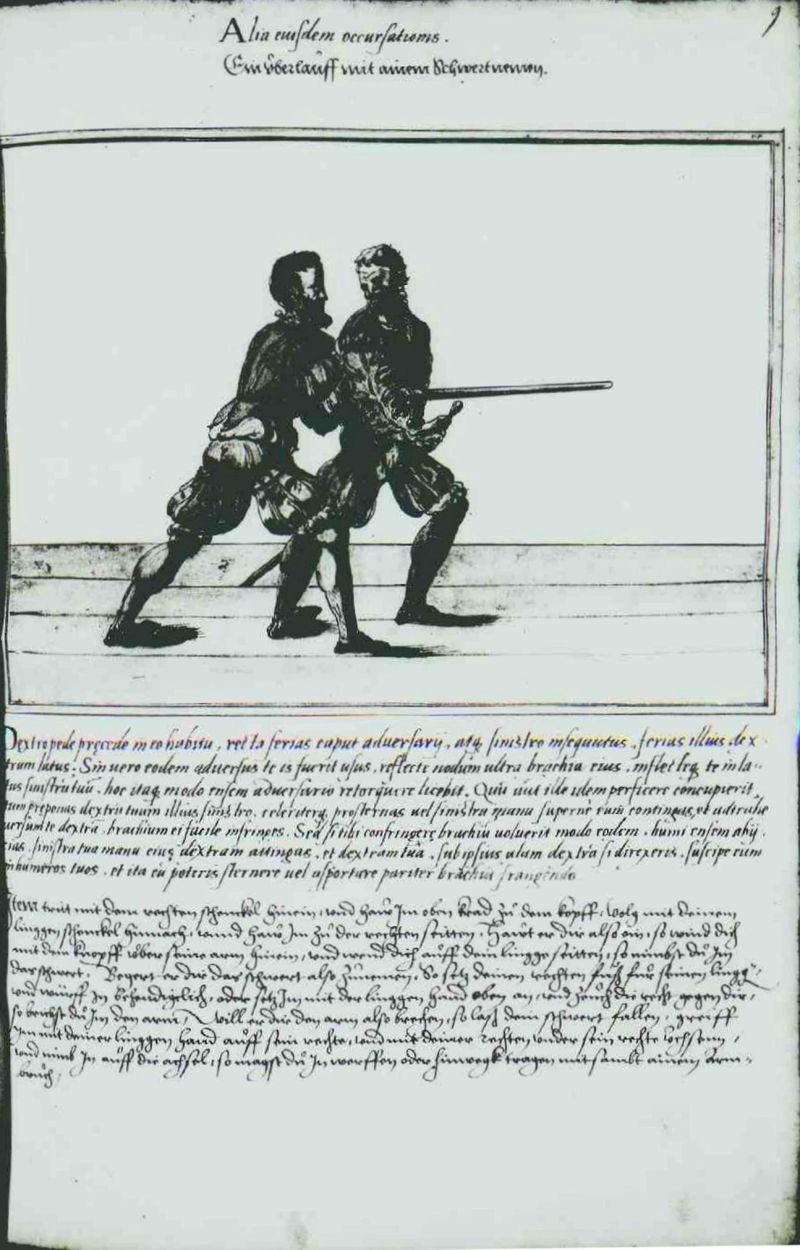 9
Alia eiusdem occursationis.
Ein überlauff mit ainem Schwertnemen.
Dextro pede procede in eo habitu, recta ferias caput adversarij, atq sinistro insequutus, ferias illius dex
trum latus. Sin vero eodem adversus te is fuerit usus, reflecte nodum ultra brachia eius, inflectesq te in la
tus sinistrum tuum, hoc itaq modo ensem adversario retorquere licebit. Qui ille idem perficere concupierit
tum preponas dextrum tuum illius sinistro, celeriterq prosternas vel sinistra manu superne eum contingas, et
versum te dextra, brachium ei facile infringes. Sed si tibi confringere brachium voluerit modo eodem, humi ensem abij
cias, sinistra tua manu eius dextram attingas, et dextram tuam, sub ipsius alam dextram si direxeris, suscipe eum
in humeros tuos, et ita eum poteris sternere vel asportare pariter brachium frangendo
Item tritt mit dem rechten schenckel hinein, und haw Im oben kread zu dem kopff, volg mit deinem
linggen schenckel hinnach, unnd haw Im zu der rechten seitten, Hawt er dir also ein, so wind dich
mit dem knopff über seine arm hinein, und wend dich auff dein lingge seitten, so nimbst du Im
dar schwert. Begert er dir dar schwert also zunemen, So setz deinen rechten fuß für seinen lingg
und würff In behendigclich, oder setz Im mit der linggen hand oben an, und zeuch die recht gegen dir,
so brichst du Im den arm, Will er dir den arm also brechen, so laß dein schwert fallen, greiff
Im mit deiner linggen hand auff sein rechte, und mit deiner rechten under sein rechte uchsenn,
und nimb In auff die achsel, so magst du In werffen oder hinwegk tragen mitsambt ainem Arm-
bruch,